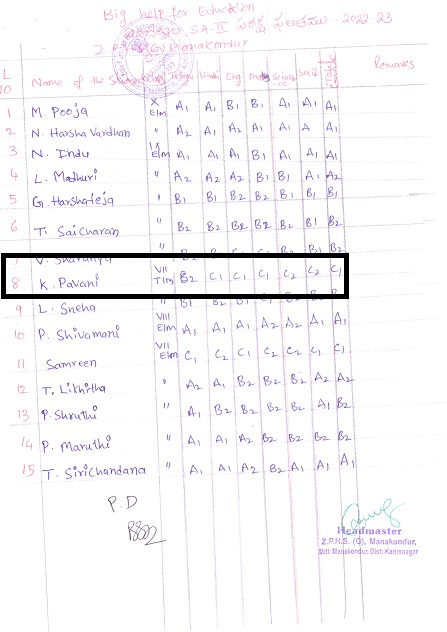 Big help for Education
SA-II పరీక్ష ఫలితములు 2022-23
Manakondur
Name of the Class Telugu Hindi Eng Maths Science Social Grade Remarks
1 M. Pooja X E/m A1 A1 B1 B1 A1 A1 A1
2 N. Harsha Vardhan " A2 A1 A2 A1 A1 A A1
3 N. Indu IX E/m A1 A1 A1 B1 A1 A1 A1
4 L. Madhuri " A2 A2 A2 B1 B1 A1 A2
5 G. Harshateja " B1 B1 B2 B2 B1 B1 B1
6 T. Saicharan " B2 B2 B2 B2 B2 B1 B2
7 V. Sharanya "
8 K. Pavani VII T/m B2 C1 C1 C1 C2 C2 C1
9 L. Sneha "
10 P. Shivamani VIII E/m A1 A1 A2 A2 A1 A1 A1
11 Samreen VII E/m C1 C2 C1 C2 C2 C1 C1
12 T. Likhitha " A2 A1 B2 B2 B2 A2 A2
13 P. Shruthi " A1 B2 B2 B2 B2 A1 B2
14 P. Maruthi " A1 A1 A2 B2 B2 B2 B2
15 T. Sirichandana " A1 A1 A2 B2 A1 A1 A1
P.D
Headmaster
Z.P.H.S. (G), Manakondur,
Mdl: Manakondur, Dist: Karimnagar